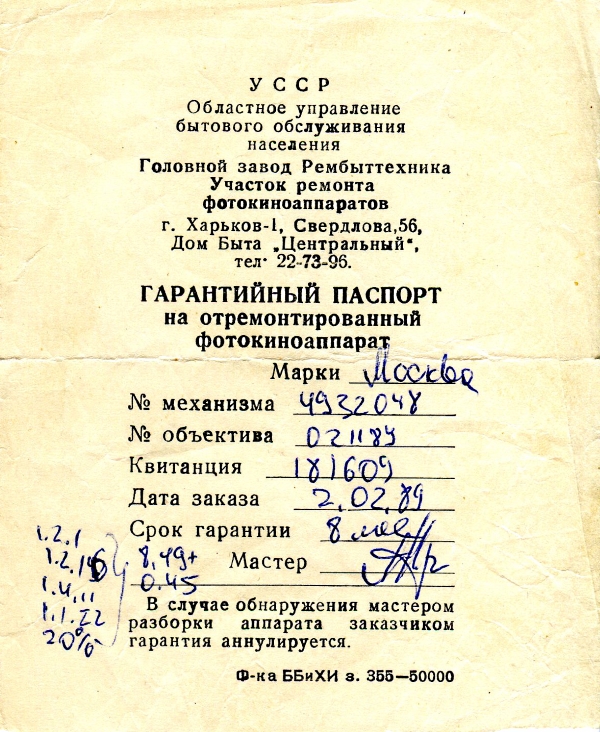 УССР
Областное управление
бытового обслуживания
населения
Головной завод Рембыттехника
Участок ремонта
фотокиноаппаратов
г. Харьков-1, Свердлова,56,
Дом Быта „Центральный",
тел. 22-73-96.
ГАРАНТИЙНЫЙ ПАСПОРТ
на отремонтированный
фотокиноаппарат
Марки Москва
№ механизма 4932048
№ объектива 021189
Квитанция 181609
Дата заказа 2.02.89
Срок гарантии 8 мес
1.2.1
1.2.
8,49+ Мастер
1.4.11 0.45
1.1.22
20%
В случае обнаружения мастером
разборки аппарата заказчиком
гарантия аннулируется.
Ф-ка ББиХИ з. 355—50000